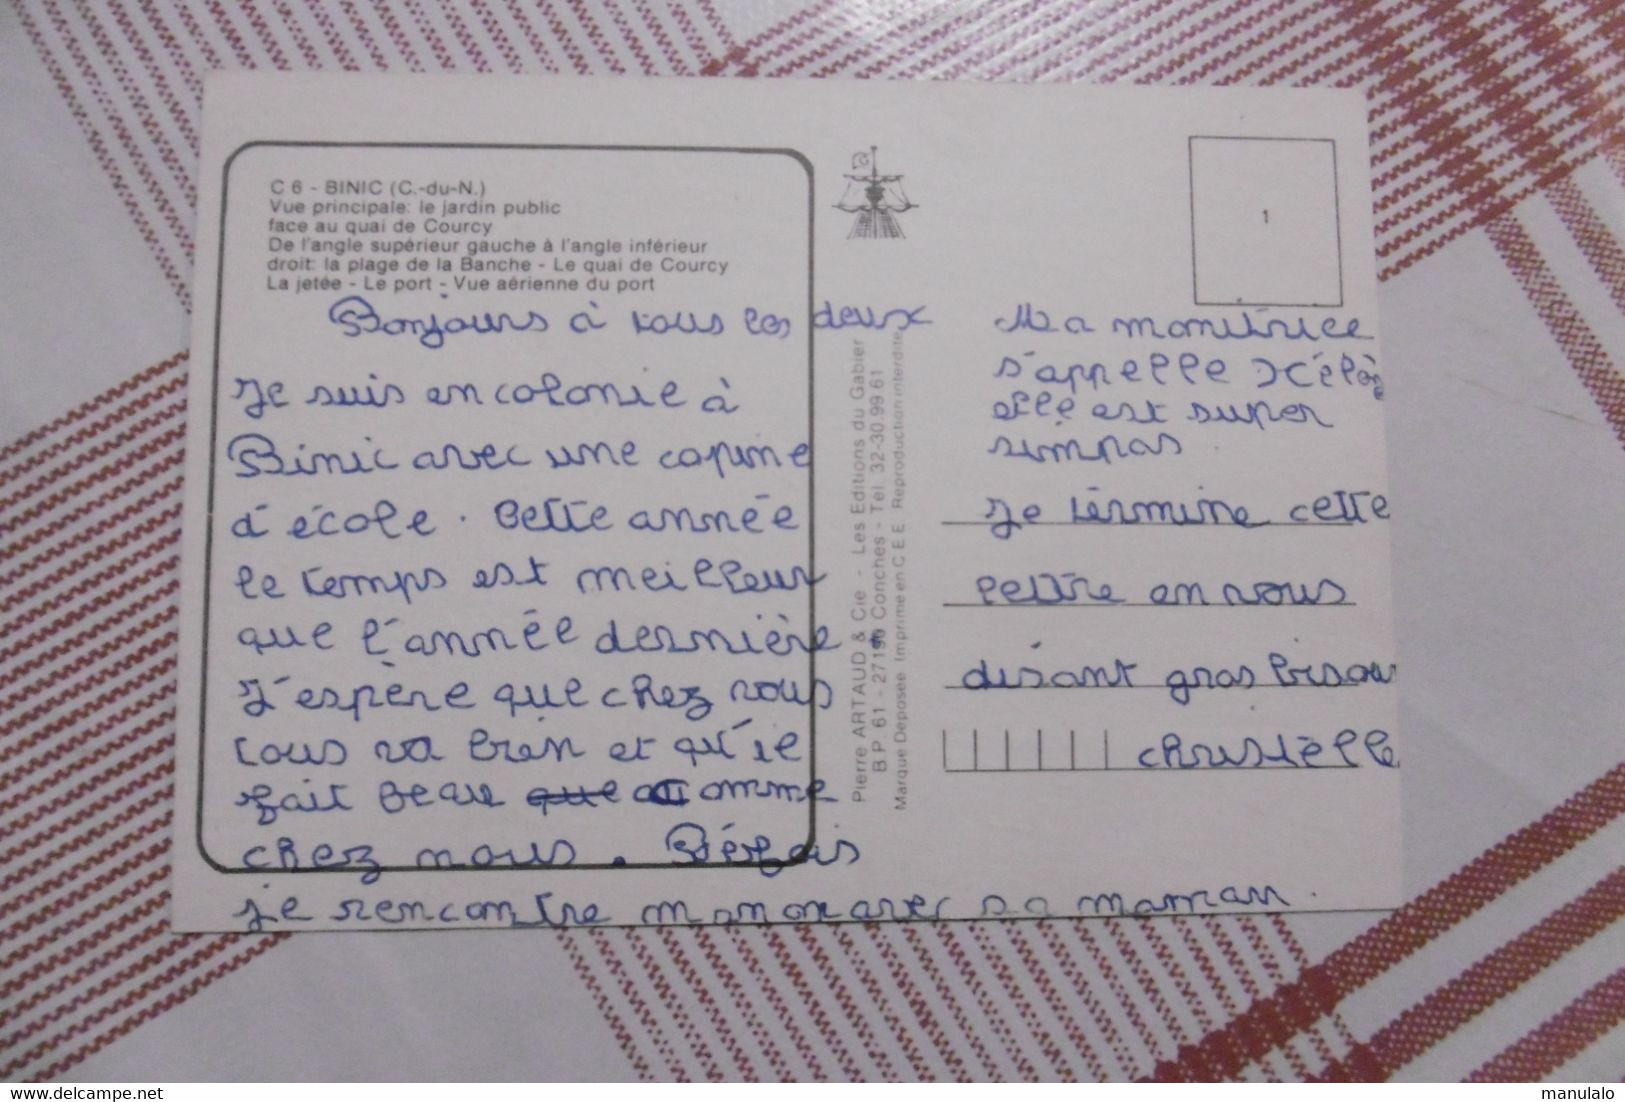 C 6 - BINIC (C.-du-N.)
Vue principale: le jardin public
face au quai de Courcy
De l'angle supérieur gauche à l'angle inférieur
droit: la plage de la Banche - Le quai de Courcy
La jetée - Le port - Vue aérienne du port
Bonjours à tous les deux
Je suis en colonie à
Binic avec une copine
d'école. Cette année
le temps est meilleur
que l'année dernière.
J'espère que chez vous
tous va bien et qu'il
fait beau que comme
chez nous.
je rencontre manon avec sa maman.
Pierre ARTAUD & Cie - Les Editions du Gabier
B.P. 61 - 27190 Conches - Tél. 32-30.99.61
Marque Déposée Imprimé en C E E Reproduction interdite
1
Ma monitrice
s'appelle
elle est super
simpas.
Je términe cette
lettre en vous
disant gros bisou
christèlle
manulalo
delcampe.net